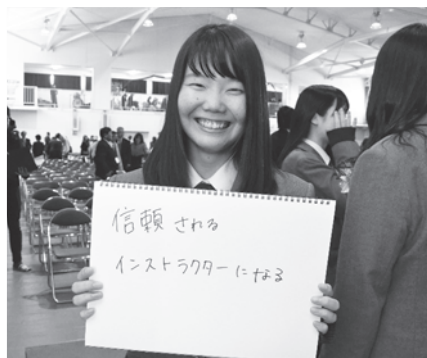 信頼される
インストラクターになる